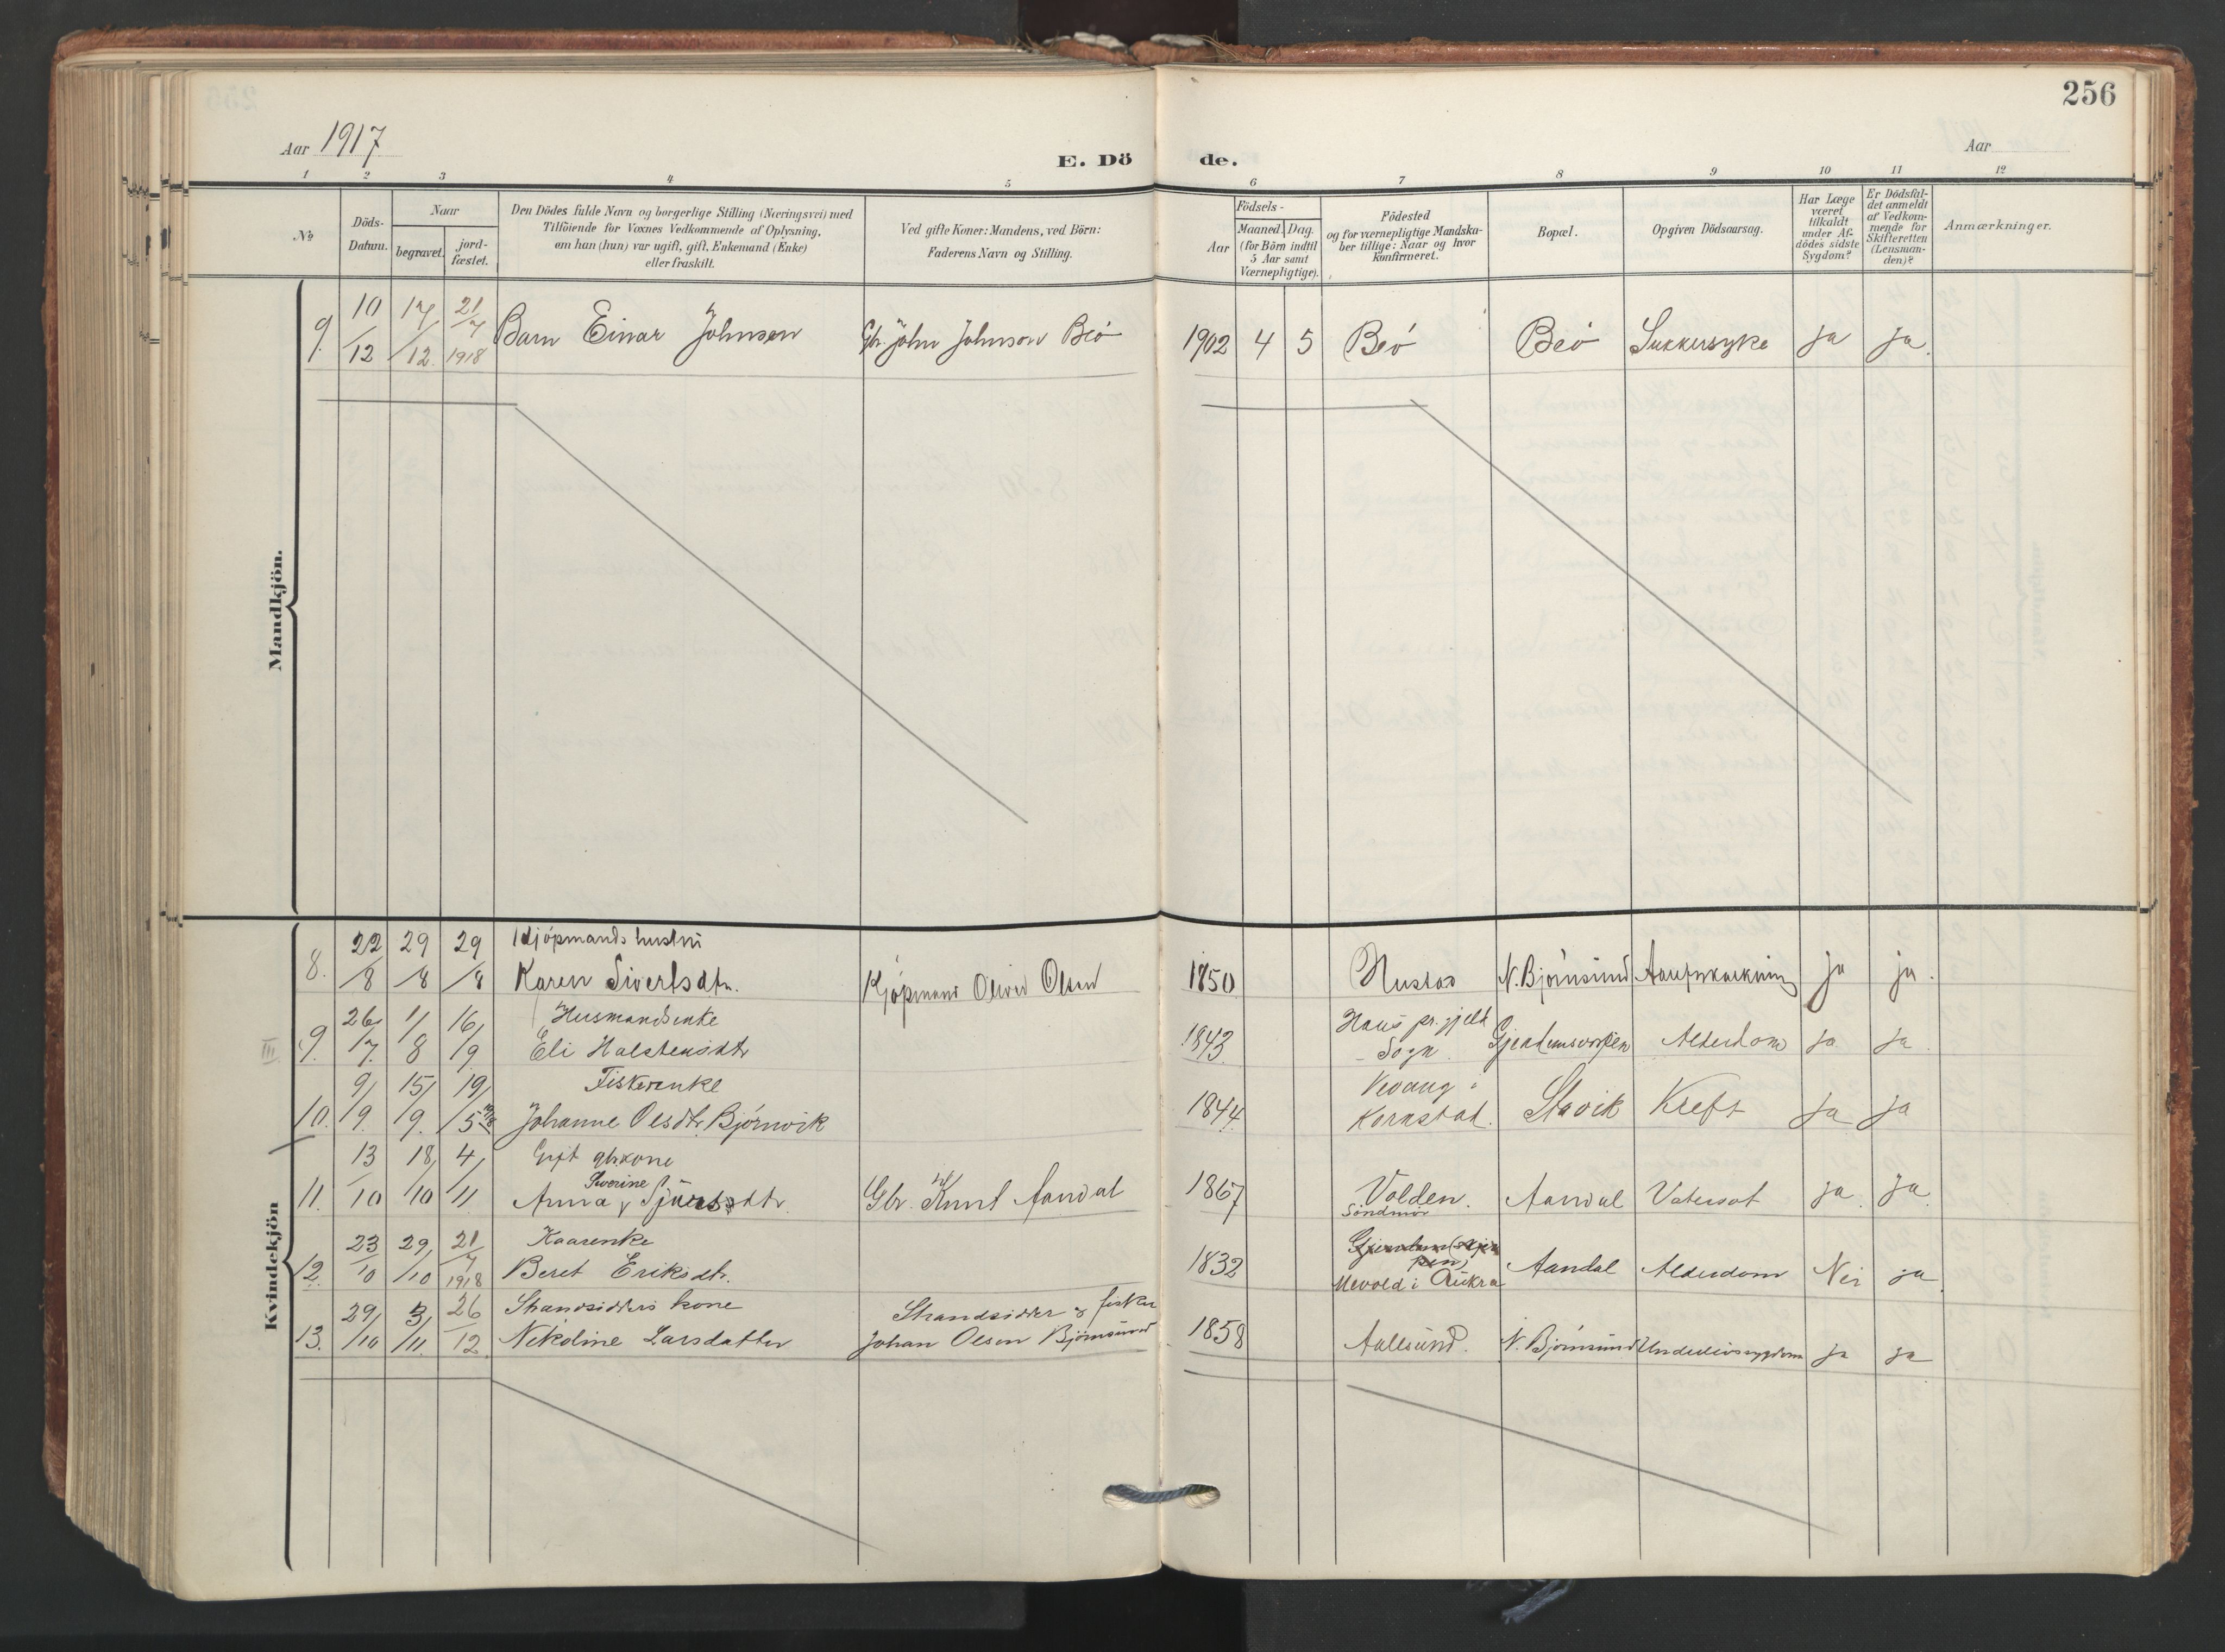 256
Aar 1917
E. Dö de.
Aar
1 2 3 4 5 6 7 8 9 10 11 12
No
Döds-Datum.
Naar
begravet.
jord-fæstet.
Den Dödes fulde Navn og borgerlige Stilling (Næringsvei) med
Tilföiende for Voxnes Vedkommende af Oplysning,
om han (hun) var ugift, gift, Enkemand (Enke)
eller fraskilt.
Ved gifte Koner: Mandens, ved Börn:
Faderens Navn og Stilling.
Födsels-
Aar
Maaned. Dag.
(for Börn indtil
5 Aar samt
Værnepligtige).
Födested
og for værnepligtige Mandska-
ber tillige: Naar og hvor
konfirmeret.
Bopæl.
Opgiven Dödsaarsag.
Har Læge
været
tilkaldt
under Af-
dödes sidste
Sygdom?
Er Dödsfal-
det anmeldt
af Vedkom-
mende for
Skifteretten
(Lensman-
den)?
Anmærkninger.
Mandkjön.
9. 10/12 17/12 21/7 1918 Barn Einar Johnsen Gbr. John Johnson Beó 1902 4 5 Beó Beó Sukkersyke ja ja.
Kvindekjön
Kjópmands hustru
8. 22/8 29/8 29/8 Karen Sivertsdtr. Kjópmand Oliver Olsen 1850 Hustad N. Bjórnsund ja ja.
Husmandsenke
9. 26/7. 1/8 16/9 Eli Halstensdtr 1843 Haus pr.gjeld
Sogn. Alderdom ja ja
III
Fiskerenke
10. 9/9. 15/9. 19/5 1918 Johanne Olsdtr. Bjórnvik 1844 Vevang i
Kornstad. Stavik Kreft ja ja
Gift gbr.kone
Severine
11. 13/10 18/10 4/11 Anna Sjúrsdtr. Gbr. Knut Aandal 1867 Volden.
Söndmör Aandal Vatersot ja ja
Kaarenke
12. 23/10 29/10 21/7 1918 Beret Eriksdtr. 1832 Mevold i Aukra Aandal Alderdom Nei ja.
Strandsidders kone Strandsidder & fisker
13. 29/10 3/11. 26/12. Nikoline Larsdatter Johan Olsen Bjórnsund 1858 Aalesund. N. Bjórnsund Underlivssygdom ja ja